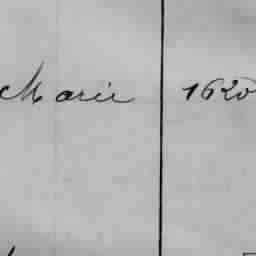 Marie 1620